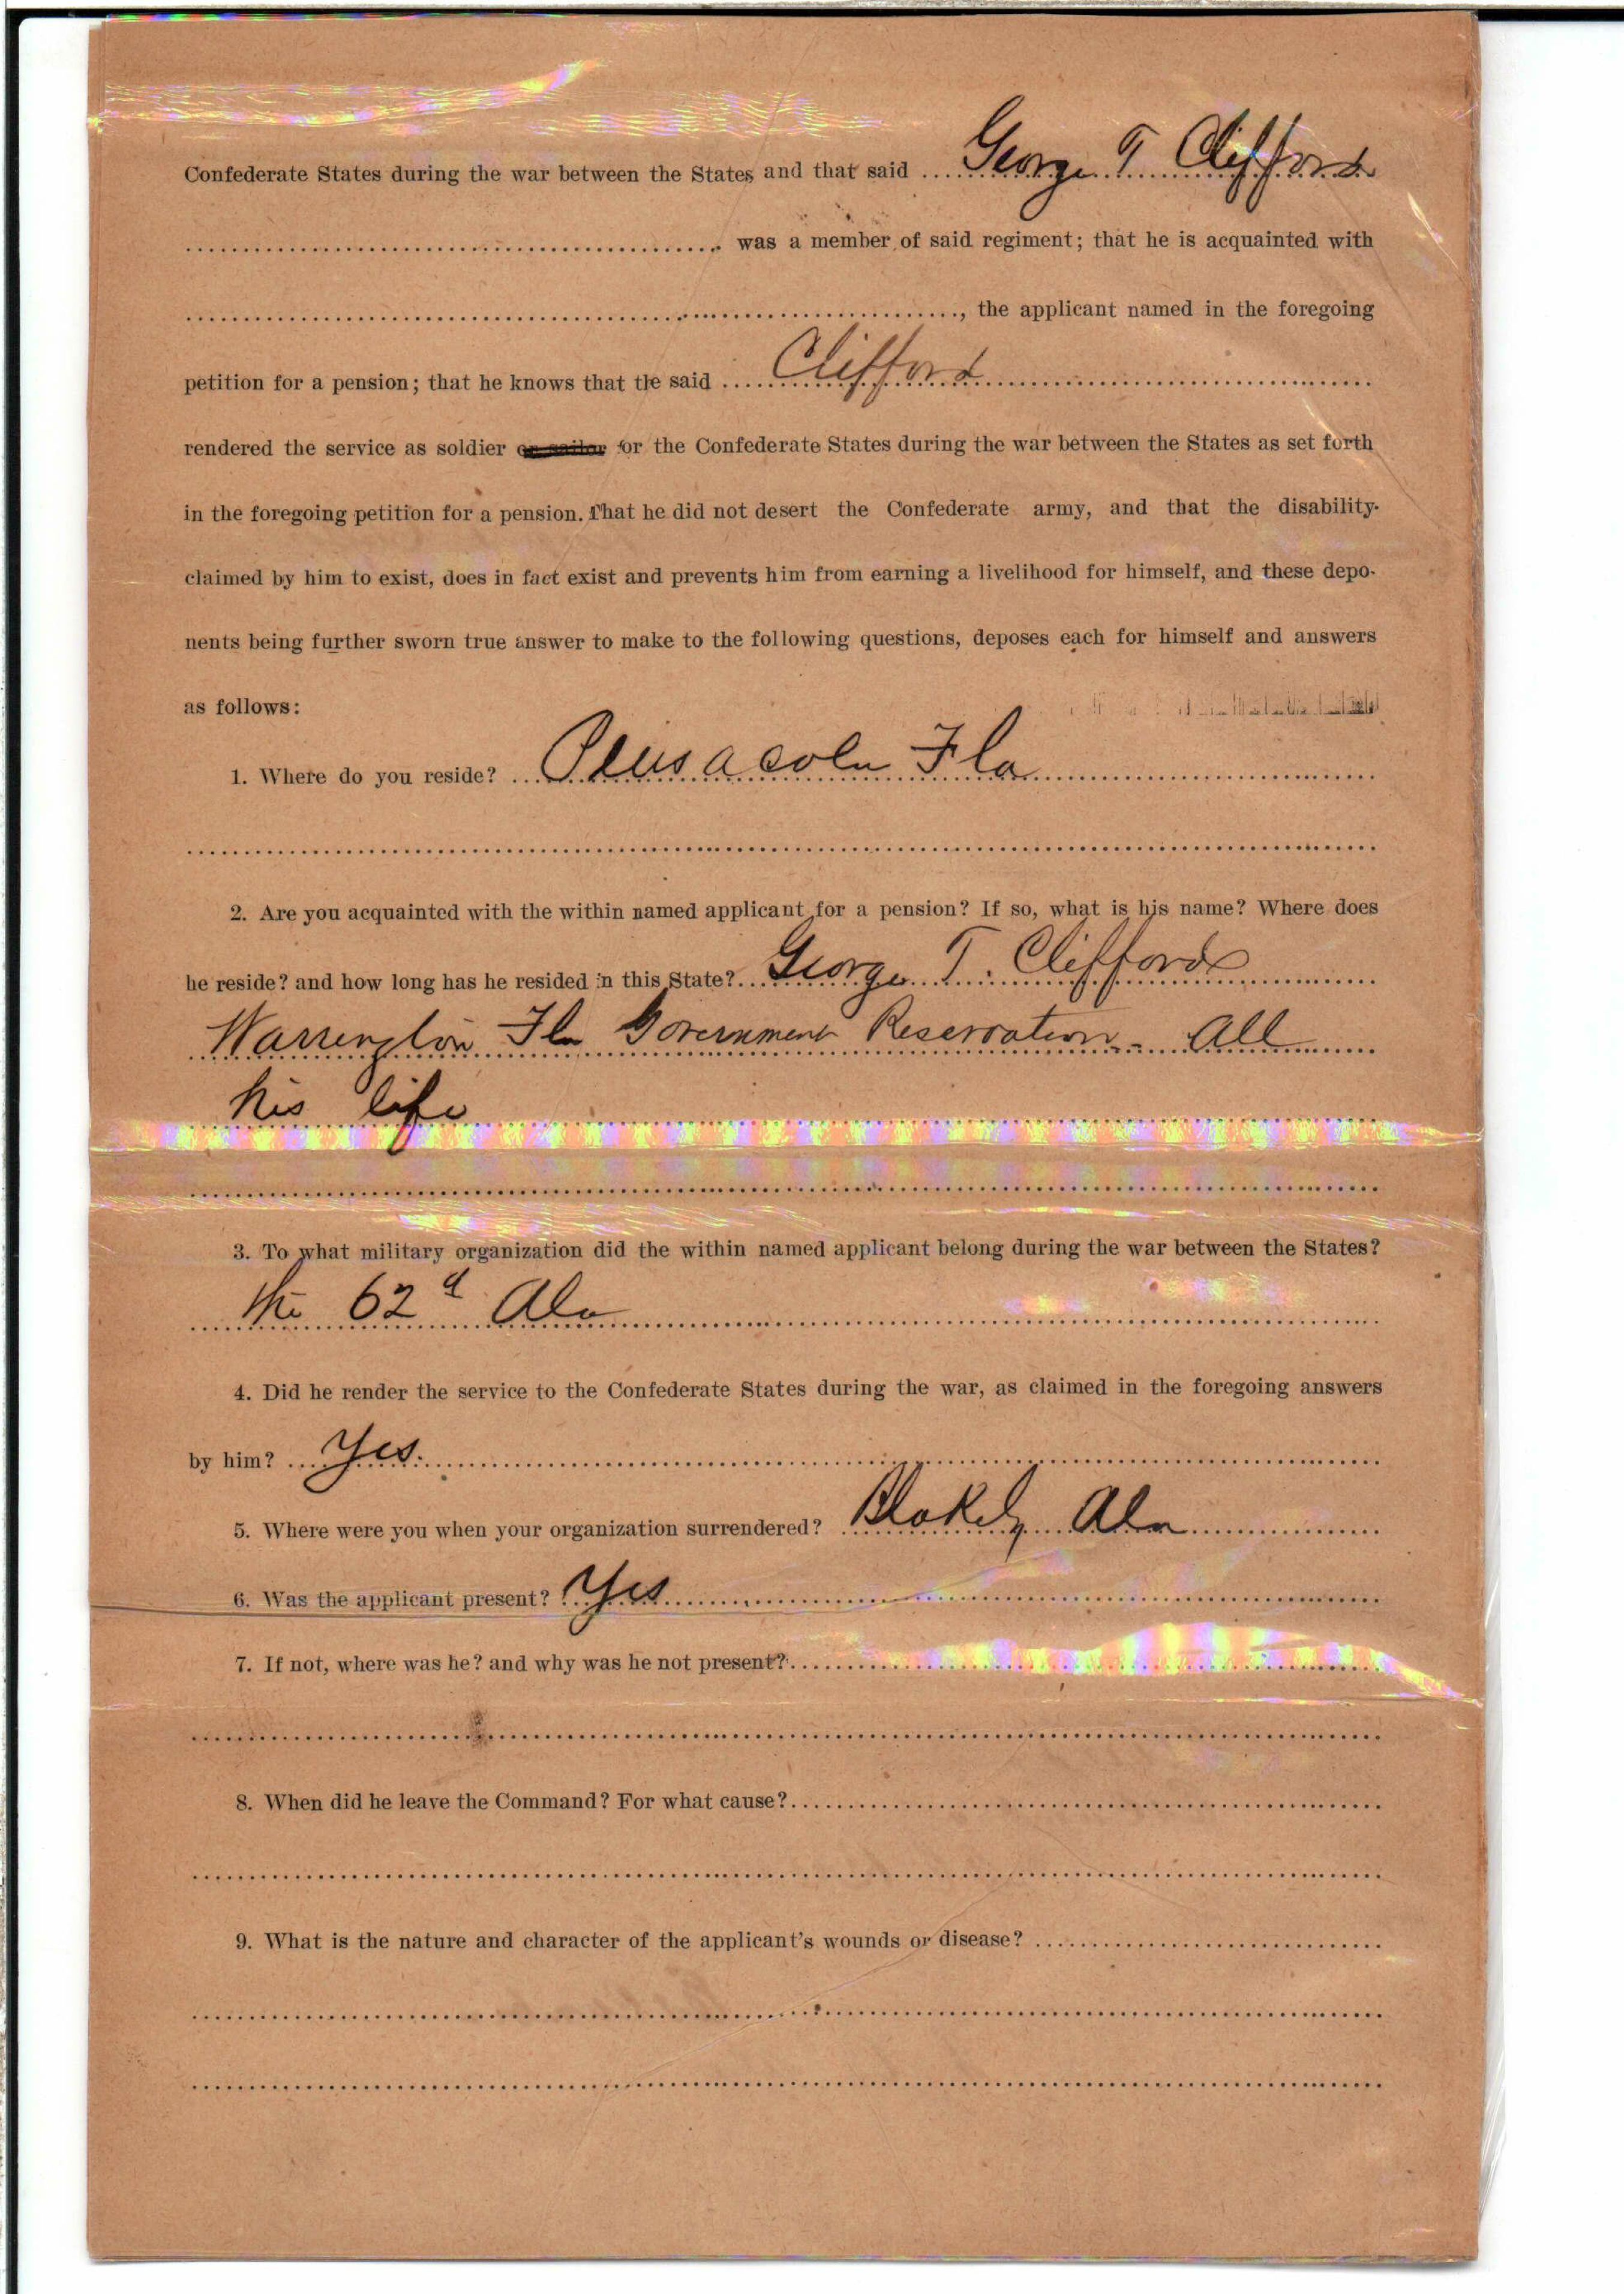 Confederate States during the war between the States and that said George T Clifford
was a member of said regiment; that he is acquainted with
, the applicant named in the foregoing
petition for a pension; that he knows that the said Clifford
rendered the service as soldier or sailor for the Confederate States during the war between the States as set forth
in the foregoing petition for a pension. That he did not desert the Confederate army, and that the disability
claimed by him to exist, does in fact exist and prevents him from earning a livelihood for himself, and these depo-
nents being further sworn true answer to make to the following questions, deposes each for himself and answers
as follows:
1. Where do you reside? Pensacola Fla
2. Are you acquainted with the within named applicant for a pension? If so, what is his name? Where does
he reside? and how long has he resided in this State? George T. Clifford
Warrington Fla Government Reservation - All
his life
3. To what military organization did the within named applicant belong during the war between the States?
the 62d Ala
4. Did he render the service to the Confederate States during the war, as claimed in the foregoing answers
by him? Yes.
5. Where were you when your organization surrendered? Blakely Ala
6. Was the applicant present? Yes
7. If not, where was he? and why was he not present?
8. When did he leave the Command? For what cause?
9. What is the nature and character of the applicant's wounds or disease?